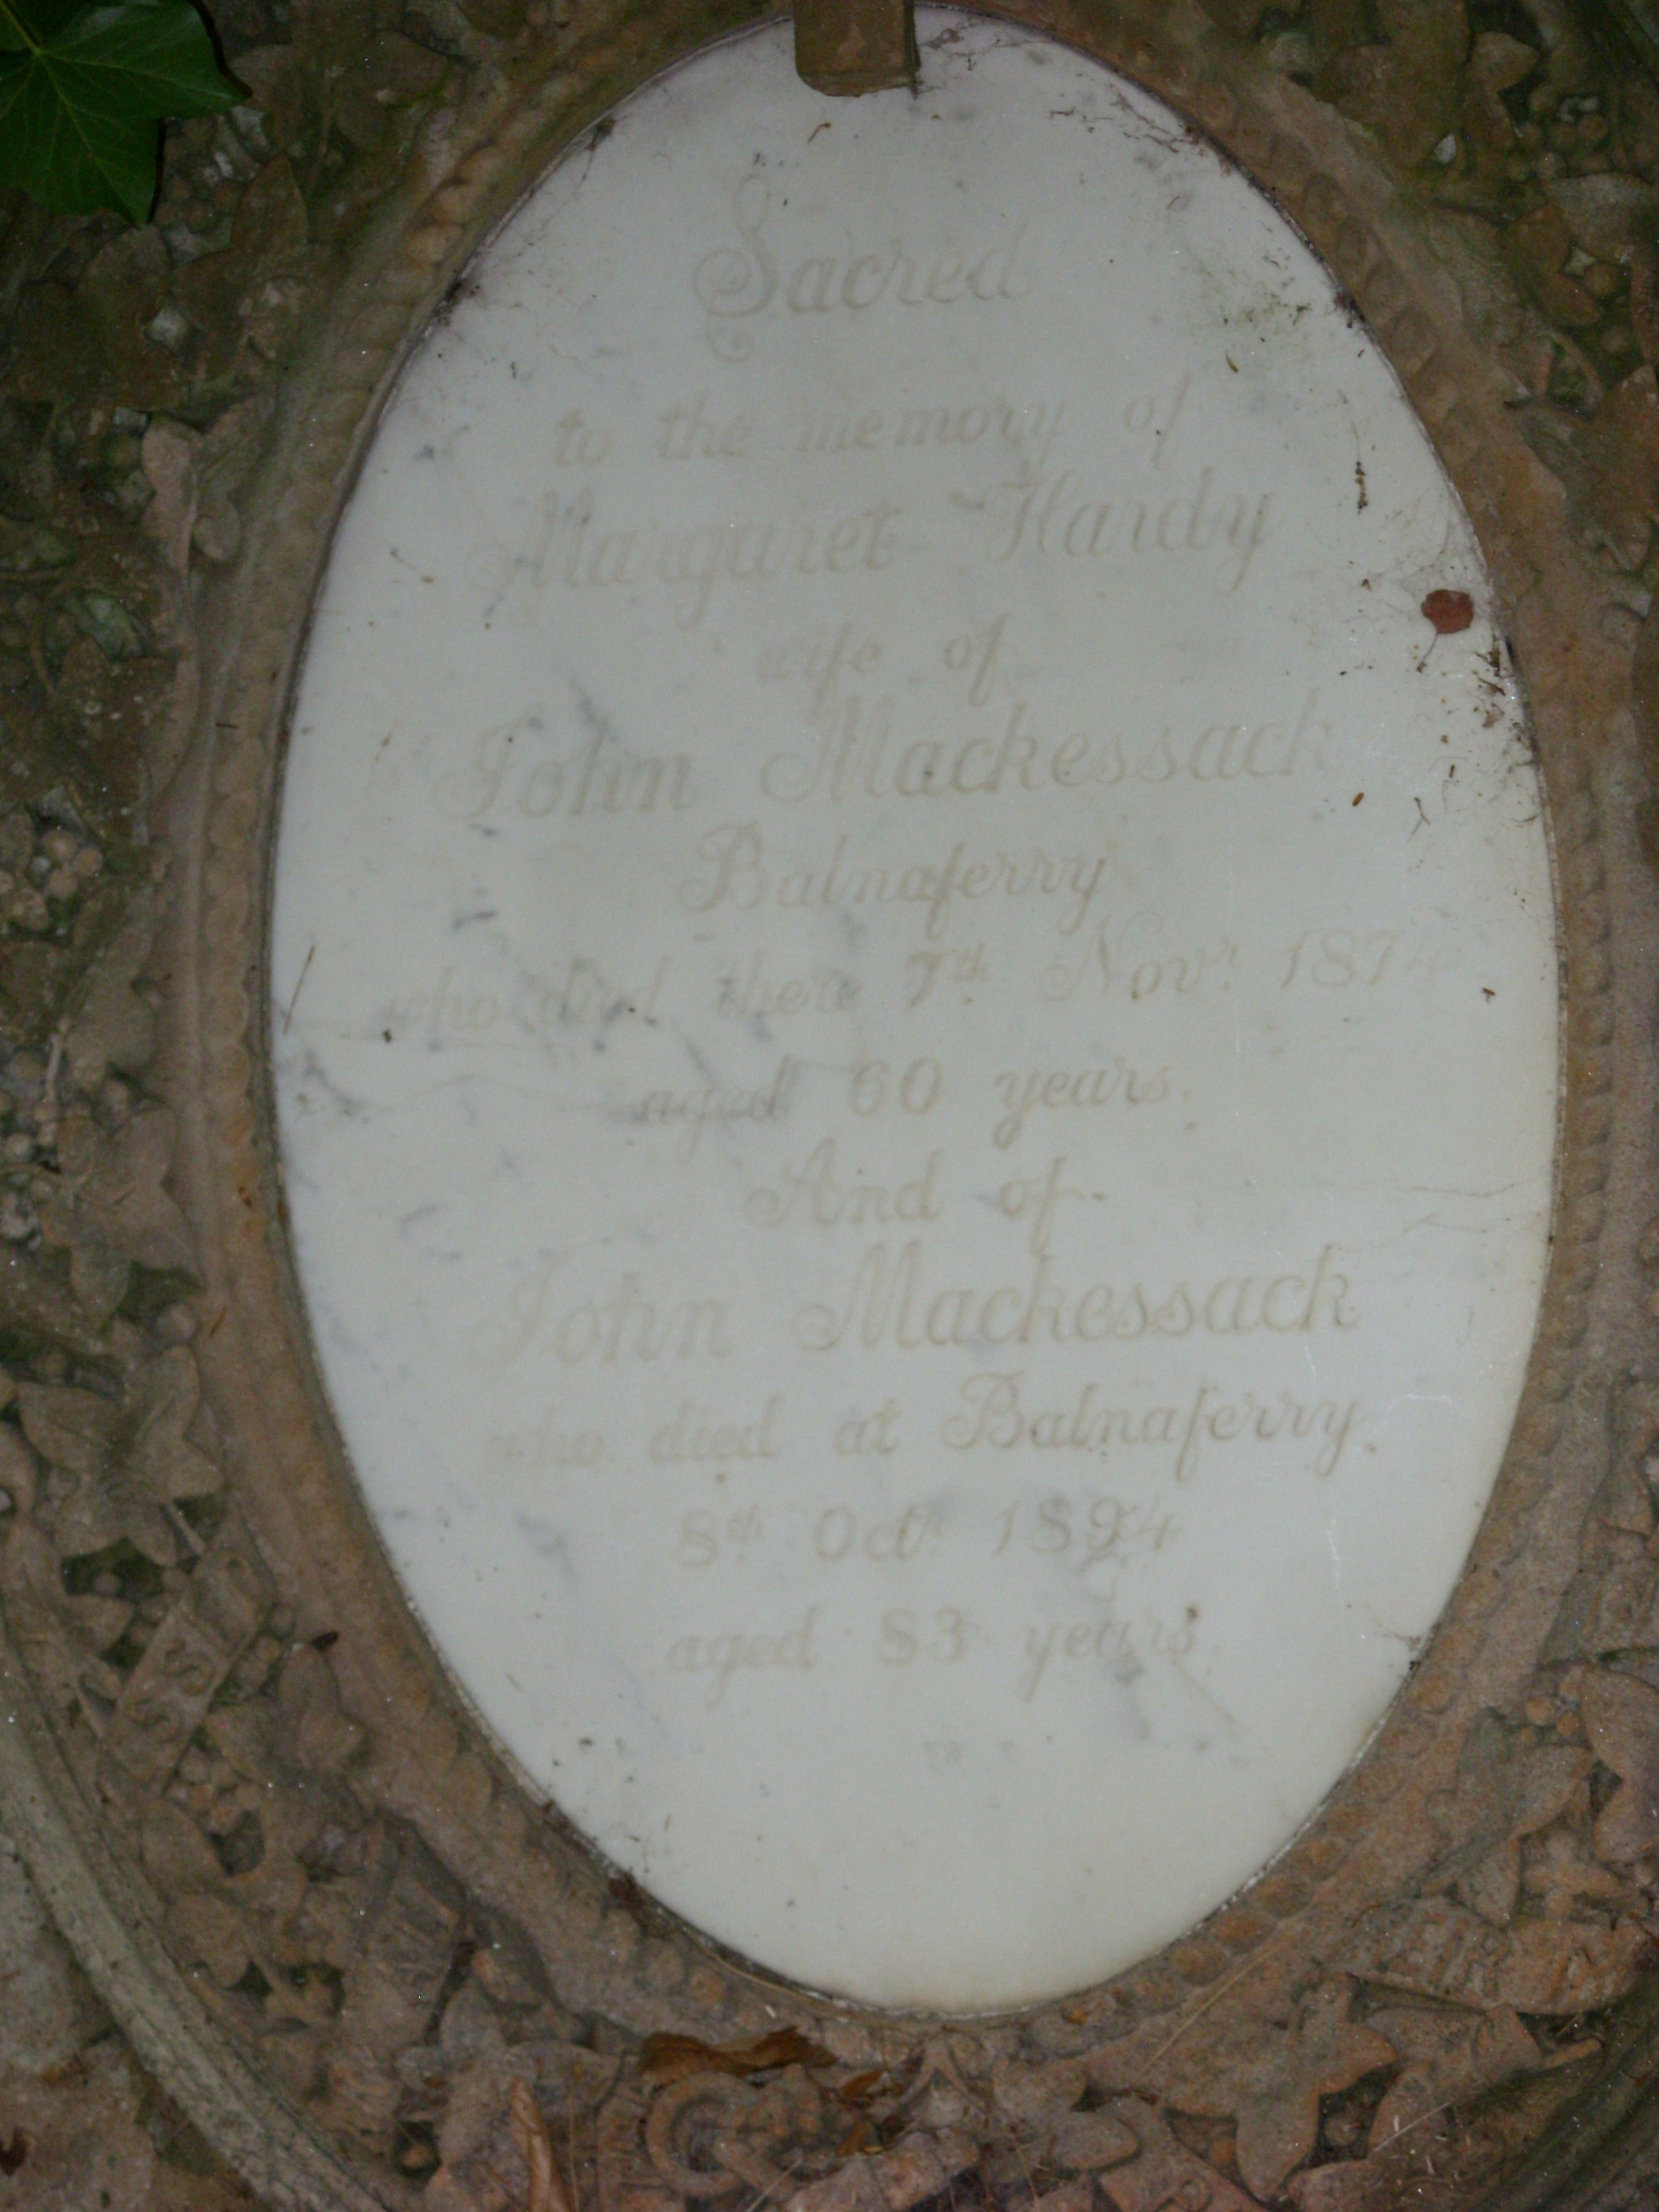 Sacred
to the memory of
Margaret Hardy
wife of
John Mackessack
Balnaferry
who died there 7th Novr 1874
aged 60 years.
And of
John Mackessack
who died at Balnaferry
8th Octr 1894
aged 83 years